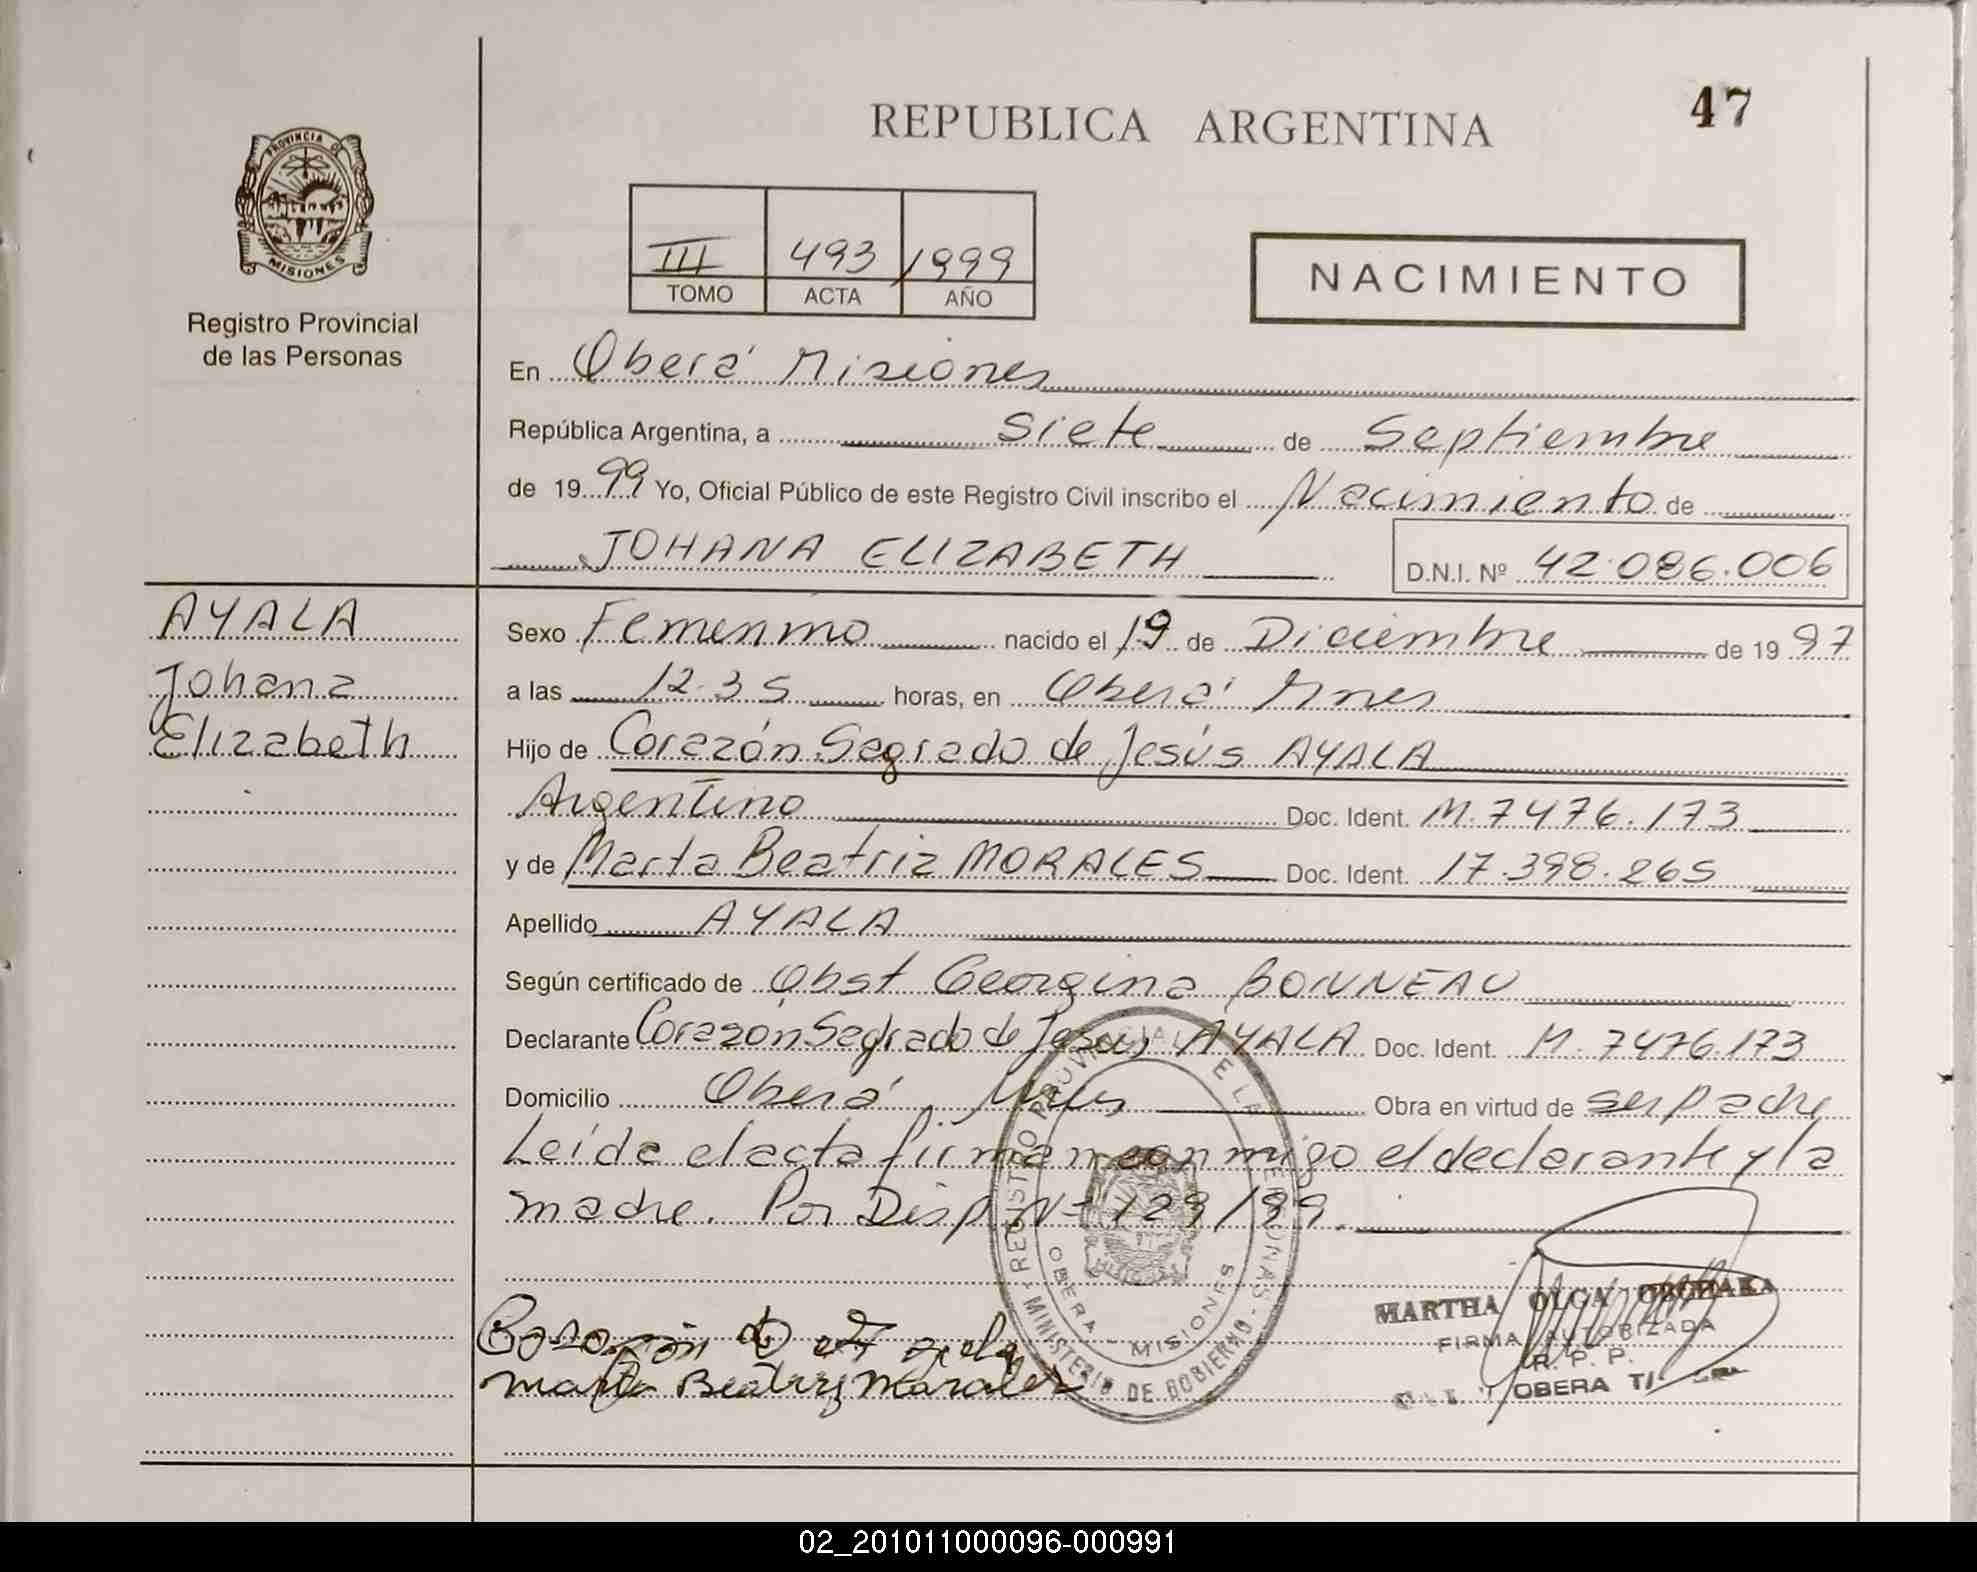 47
REPUBLICA ARGENTINA
PROVINCIA DE
MISIONES
Registro Provincial
de las Personas
III 493 1999
TOMO ACTA AÑO
NACIMIENTO
En Oberá Misiones
República Argentina, a siete de Septiembre
de 1999 Yo, Oficial Público de este Registro Civil inscribo el Nacimiento de
JOHANA ELIZABETH D.N.I. Nº 42.086.006
AYALA
Johana
Elizabeth
Sexo Femenino nacido el 19 de Diciembre de 1997
a las 12.35 horas, en Oberá Mnes
Hijo de Corazón Sagrado de Jesús AYALA
Argentino Doc. Ident. M. 7476.173
y de Marta Beatriz MORALES Doc. Ident. 17.398.265
Apellido AYALA
Según certificado de Obst Georgina BONNEAU
Declarante Corazón Sagrado de Jesus AYALA Doc. Ident. M. 7476.173
Domicilio Oberá Mnes Obra en virtud de ser padre
Leída el acta firman conmigo el declarante y la
madre. Por Disp Nº 129/99.
REGISTRO PROVINCIAL DE LAS PERSONAS
OBERA - MISIONES
MINISTERIO DE GOBIERNO
Corazón de
Marta Beatriz Morales
MARTHA OLGA
FIRMA AUTORIZADA
R. P. P.
OBERA
02_201011000096-000991